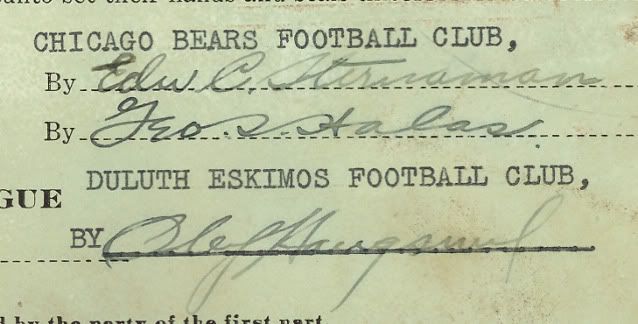 set their hands and seals
CHICAGO BEARS FOOTBALL CLUB,
By Edw C. Sternaman
By Geo. S. Halas.
DULUTH ESKIMOS FOOTBALL CLUB,
GUE
BY Haugsrud
by the party of the first part.